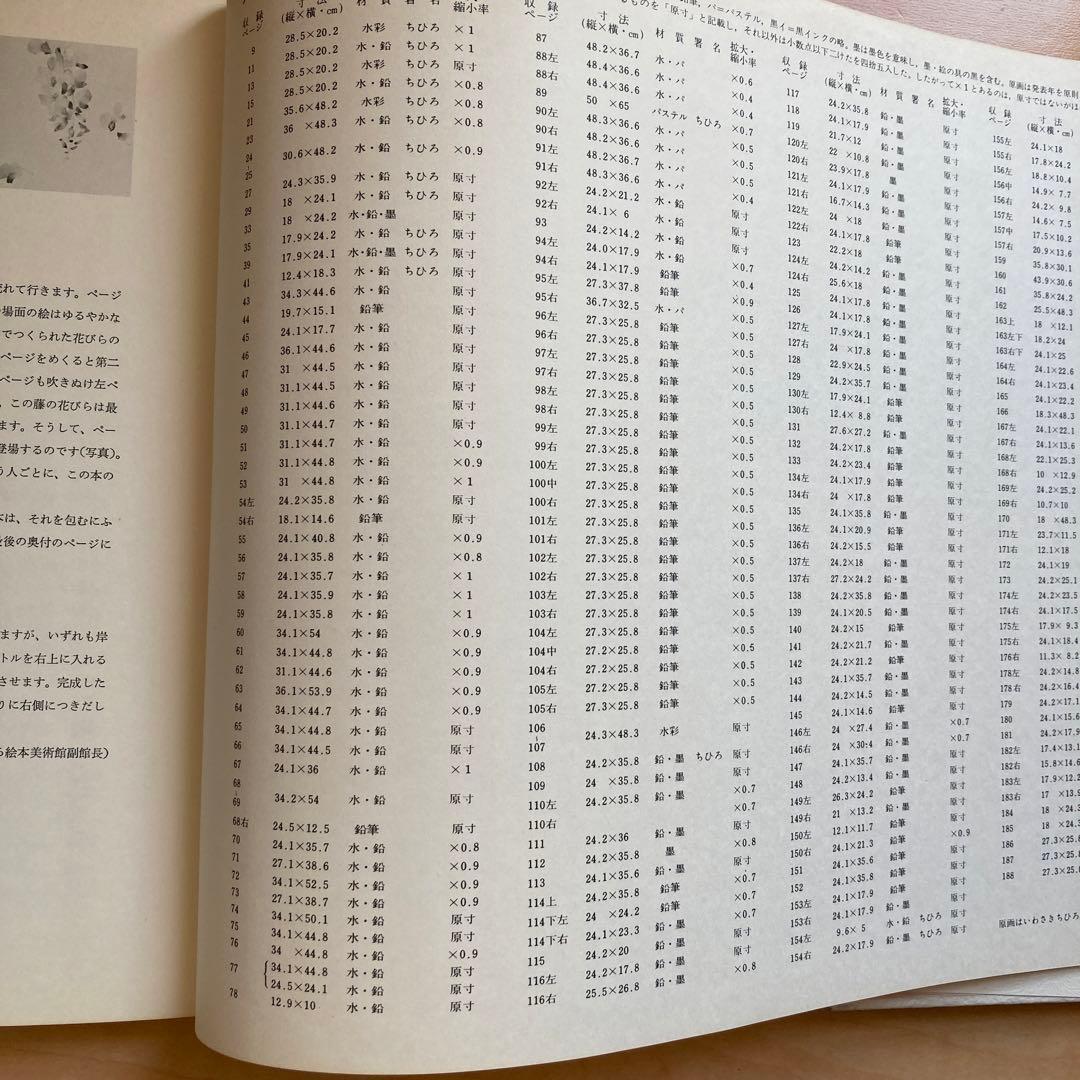 れて行きます。ページ
場面の絵はゆるやかな
でつくられた花びらの
ページをめくると第二
ページも吹きぬけ左ペ
、この藤の花びらは最
ます。そうして、ペー
登場するのです(写真)。
う人ごとに、この本の
は、それを包むにふ
後の奥付のページに
ますが、いずれも岸
トルを右上に入れる
させます。完成した
りに右側につきだし
絵本美術館副館長)
パ=パステル，黒イ=黒インクの略。墨は墨色を意味し，墨・絵の具の黒を含む。原画は発表年を原則
ものを「原寸」と記載し，それ以外は小数点以下二けたを四捨五入した。したがって×1とあるのは，原寸ではないがほ
収録ページ 寸法(縦×横・cm) 材質 署名 縮小率
9 28.5×20.2 水彩 ちひろ ×1
11 28.5×20.2 水・鉛 ちひろ ×1
13 28.5×20.2 水彩 ちひろ 原寸
15 28.5×20.2 水・鉛 ちひろ ×0.8
21 35.6×48.2 水彩 ちひろ ×0.8
23 36 ×48.3 水・鉛 ちひろ ×0.8
24-25 30.6×48.2 水・鉛 ちひろ ×0.9
27 24.3×35.9 水・鉛 ちひろ 原寸
29 18 ×24.1 水・鉛 ちひろ 原寸
33 18 ×24.2 水・鉛・墨 原寸
35 17.9×24.2 水・鉛 ちひろ 原寸
39 17.9×24.1 水・鉛・墨 ちひろ 原寸
41 12.4×18.3 水・鉛 ちひろ 原寸
43 34.3×44.6 水・鉛 原寸
44 19.7×15.1 鉛筆 原寸
45 24.1×17.7 水・鉛 原寸
46 36.1×44.6 水・鉛 原寸
47 31 ×44.5 水・鉛 原寸
48 31.1×44.5 水・鉛 原寸
49 31.1×44.6 水・鉛 原寸
50 31.1×44.7 水・鉛 原寸
51 31.1×44.7 水・鉛 ×0.9
52 31.1×44.8 水・鉛 ×0.9
53 31 ×44.8 水・鉛 ×1
54左 24.2×35.8 水・鉛 原寸
54右 18.1×14.6 鉛筆 原寸
55 24.1×40.8 水・鉛 ×0.9
56 24.1×35.8 水・鉛 ×0.8
57 24.1×35.7 水・鉛 ×1
58 24.1×35.9 水・鉛 ×1
59 24.1×35.8 水・鉛 ×1
60 34.1×54 水・鉛 ×0.9
61 34.1×44.8 水・鉛 ×0.9
62 31.1×44.6 水・鉛 ×0.9
63 36.1×53.9 水・鉛 ×0.9
64 34.1×44.7 水・鉛 ×0.9
65 34.1×44.8 水・鉛 原寸
66 34.1×44.5 水・鉛 原寸
67 24.1×36 水・鉛 ×1
68-69 34.2×54 水・鉛 原寸
68右 24.5×12.5 鉛筆 原寸
70 24.1×35.7 水・鉛 ×0.8
71 27.1×38.6 水・鉛 ×0.9
72 34.1×52.5 水・鉛 ×0.9
73 27.1×38.7 水・鉛 ×0.9
74 34.1×50.1 水・鉛 原寸
75 34.1×44.8 水・鉛 原寸
76 34 ×44.8 水・鉛 ×0.9
77 34.1×44.8 水・鉛 原寸
24.5×24.1 水・鉛 原寸
78 12.9×10 水・鉛 原寸
収録ページ 寸法(縦×横・cm) 材質 署名 拡大・縮小率
87 48.2×36.7 水・パ ×0.6
88左 48.4×36.6 水・パ ×0.4
88右 48.4×36.6 水・パ ×0.4
89 50 ×65 パステル ちひろ ×0.7
90左 48.3×36.6 水・パ ×0.5
90右 48.2×36.6 水・パ ×0.5
91左 48.2×36.7 水・パ ×0.5
91右 48.3×36.7 水・パ ×0.4
92左 24.2×21.2 水・鉛 原寸
92右 24.1× 6 水・鉛 原寸
93 24.2×14.2 水・鉛 原寸
94左 24.0×17.9 水・鉛 ×0.7
94右 24.1×17.9 鉛筆 ×0.8
95左 27.3×43.8 水・鉛
95右 36.7×32.5 水・パ ×0.9
96左 27.3×25.8 鉛筆 ×0.5
96右 27.3×25.8 鉛筆 ×0.5
97左 27.3×25.8 鉛筆 ×0.5
97右 27.3×25.8 鉛筆 ×0.5
98左 27.3×25.8 鉛筆 ×0.5
98右 27.3×25.8 鉛筆 ×0.5
99左 27.3×25.8 鉛筆 ×0.5
99右 27.3×25.8 鉛筆 ×0.5
100左 27.3×25.8 鉛筆 ×0.5
100中 27.3×25.8 鉛筆 ×0.5
100右 27.3×25.8 鉛筆 ×0.5
101左 27.3×25.8 鉛筆 ×0.5
101右 27.3×25.8 鉛筆 ×0.5
102左 27.3×25.8 鉛筆 ×0.5
102右 27.3×25.8 鉛筆 ×0.5
103左 27.3×25.8 鉛筆 ×0.5
103右 27.3×25.8 鉛筆 ×0.5
104左 27.3×25.8 鉛筆 ×0.5
104中 27.2×25.8 鉛筆 ×0.5
104右 27.2×25.8 鉛筆 ×0.5
105左 27.2×25.8 鉛筆 ×0.5
105右 27.3×25.8 鉛筆 ×0.5
106-107 24.3×48.3 水彩 原寸
108 24.2×35.8 鉛・墨 ちひろ 原寸
109 24 ×35.8 鉛・墨 ×0.7
110左 24.2×35.8 鉛・墨 ×0.7
110右
111 24.2×36 鉛・墨 原寸
112 24.2×35.8 墨 ×0.7
113 24.1×35.6 鉛・墨 原寸
114上 24.2×35.8 鉛筆 ×0.7
114下左 24 ×24.2 鉛筆 ×0.7
114下右 24.1×23.3 鉛・墨 原寸
115 24.2×20 鉛・墨 原寸
116左 24.2×17.8 鉛・墨 原寸
116右 25.5×26.8 鉛・墨 ×0.8
収録ページ 寸法(縦×横・cm) 材質 署名 拡大・縮小率
117 24.2×35.8 鉛・墨 原寸
118 24.1×17.9 鉛・墨 原寸
119 21.7×12 鉛・墨 原寸
120左 22 ×10.8 鉛・墨 原寸
120右 23.9×17.8 墨 原寸
121左 24.1×17.9 鉛・墨 原寸
121右 16.7×14.3 鉛・墨 原寸
122左 24 ×18 鉛・墨 原寸
122右 24.1×17.8 鉛筆 原寸
123 22.2×18 鉛筆 原寸
124左 24.2×14.2 鉛・墨 原寸
124右 25.6×18 鉛・墨 原寸
125 24.1×17.8 鉛・墨 原寸
126 24.1×17.8 鉛・墨 原寸
127左 17.9×24.1 鉛・墨 原寸
127右 24 ×17.8 鉛・墨 原寸
128 22.9×24.5 鉛・墨 原寸
129 24.2×35.7 鉛・墨 原寸
130左 17.9×24.1 鉛筆 原寸
130右 12.4× 8.8 鉛筆 原寸
131 27.6×27.2 鉛・墨 原寸
132 24.2×18 鉛筆 原寸
133 24.2×23.4 鉛筆 原寸
134左 24.1×17.9 鉛筆 原寸
134右 24 ×17.8 鉛筆 原寸
135 24.1×35.8 鉛・墨 原寸
136左 24.1×20.9 鉛筆 原寸
136右 24.2×15.5 鉛筆 原寸
137左 24.2×18 鉛・墨 原寸
137右 27.2×24.2 鉛・墨 原寸
138 24.2×35.8 鉛・墨 原寸
139 24.1×20.5 鉛・墨 原寸
140 24.2×15 鉛筆 原寸
141 24.2×21.7 鉛・墨 原寸
142 24.2×21.2 鉛筆 原寸
143 24.1×35.7 鉛・墨 原寸
144 24.2×14.5 鉛・墨 原寸
145 24.1×14.6 鉛筆 原寸
146左 24 ×27.4 鉛・墨 ×0.7
146右 24 ×30.4 鉛・墨 ×0.7
147 24.1×35.7 鉛・墨 原寸
148 24.2×13.4 鉛・墨 原寸
149左 26.3×24.2 鉛筆 原寸
149右 21 ×13.2 鉛・墨 原寸
150左 12.1×11.7 鉛筆 原寸
150右 24.1×21.3 鉛筆 ×0.9
151 24.1×35.6 鉛筆 原寸
152 24.1×35.8 鉛筆 原寸
153左 24.1×17.9 鉛筆 原寸
153右 24.1×17.9 鉛・墨 原寸
154左 9.6× 5 水・鉛 ちひろ 原寸
154右 24.2×17.9 鉛・墨 ちひろ 原寸
収録ページ 寸法(縦×横・cm)
155左 24.1×18
155右 17.8×24.2
156左 18.8×10.4
156中 14.9× 7.7
156右 24.2× 9.8
157左 14.6× 7.5
157中 17.5×10.2
157右 20.9×13.6
159 35.8×30.1
160 43.9×30.6
161 35.8×24.2
162 25.5×48.3
163上 18 ×12.1
163左下 18.2×24
163右下 24.1×25
164左 24.1×22.6
164右 24.1×23.4
165 24.1×22.2
166 18.3×48.3
167左 24.1×22.1
167右 24.1×13.6
168左 22.1×25.3
168右 10 ×12.9
169左 24.2×25.2
169右 10.7×10
170 18 ×48.3
171左 23.7×11.5
171右 12.1×18
172 24.1×19
173 24.2×25.1
174左 24.2×23.5
174右 24.1×17.5
175左 17.9× 9.3
175右 24.1×18.4
176右 11.3× 8.2
178左 24.2×14.8
178右 24.2×16.4
179 24.2×17.1
180 24.1×15.6
181 24.2×17.9
182左 17.4×13.1
182右 15.8×14.6
183左 17.9×12.2
183右 17 ×13.9
184 18 ×24.3
185 18 ×24.3
186 27.3×25.8
187 27.3×25.8
188 27.3×25.8
原画はいわさきちひろ